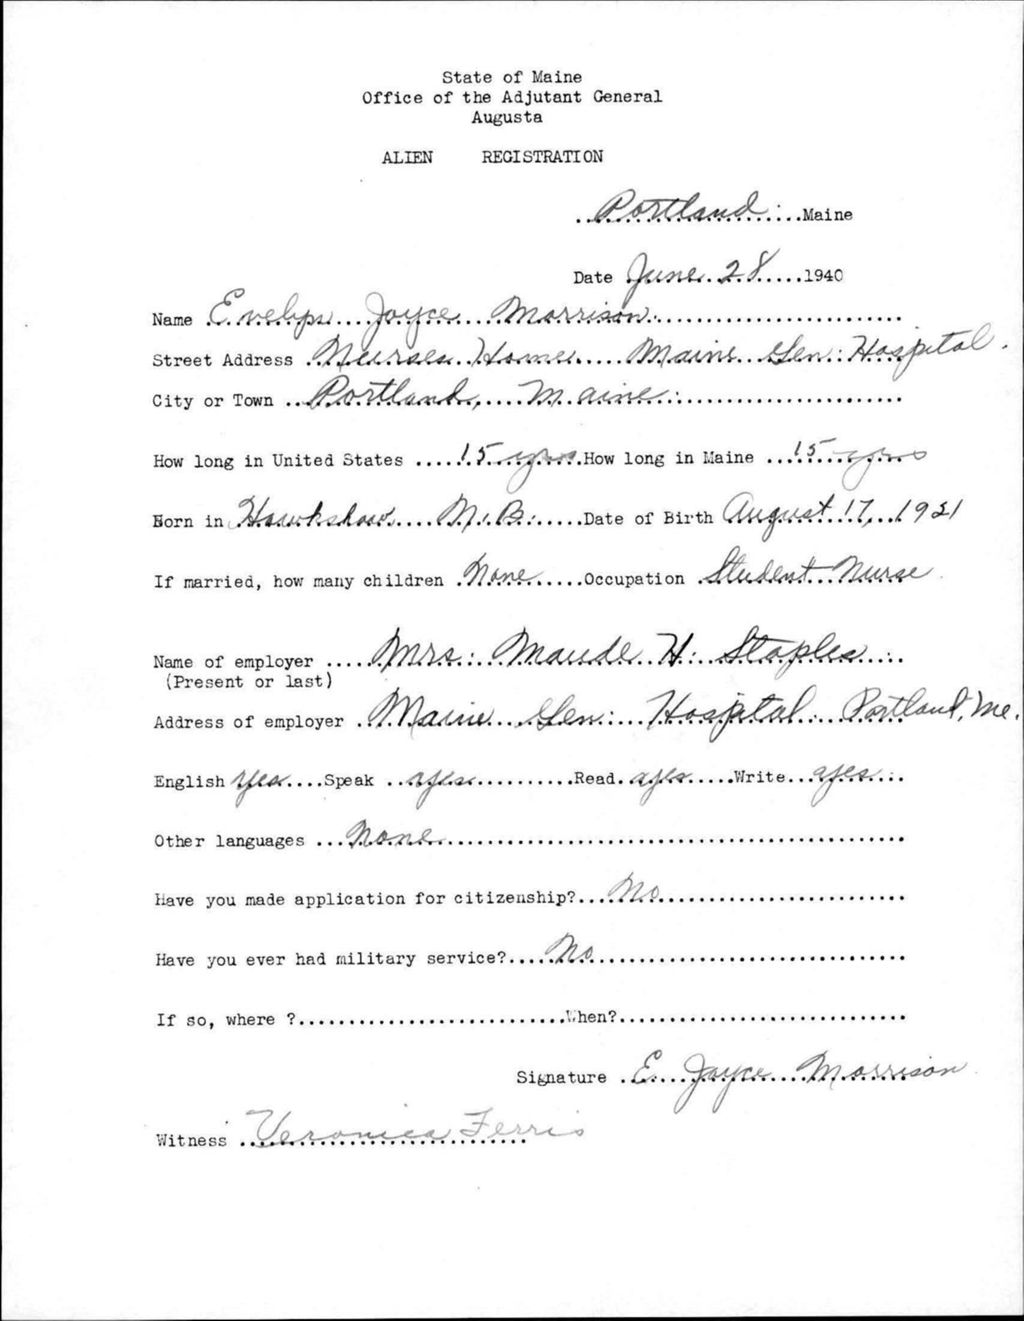 State of Maine
Office of the Adjutant General
Augusta
ALIEN REGISTRATION
Portland Maine
Date June 28 1940
Name Evelyn Joyce Morrison
Street Address Nurses Home Maine Gen. Hospital.
City or Town Portland, Maine
How long in United States 15 yrs How long in Maine 15 yrs
Born in Hawkshaw N.B. Date of Birth August 17, 1921
If married, how many children None Occupation Student Nurse
Name of employer Mrs. Maude H. Staples
(Present or last)
Address of employer Maine Gen. Hospital Portland, Me.
English Yes Speak yes Read yes Write yes
Other languages None
Have you made application for citizenship? No
Have you ever had military service? No
If so, where ? When?
Signature E. Joyce Morrison
Witness Veronica Ferris